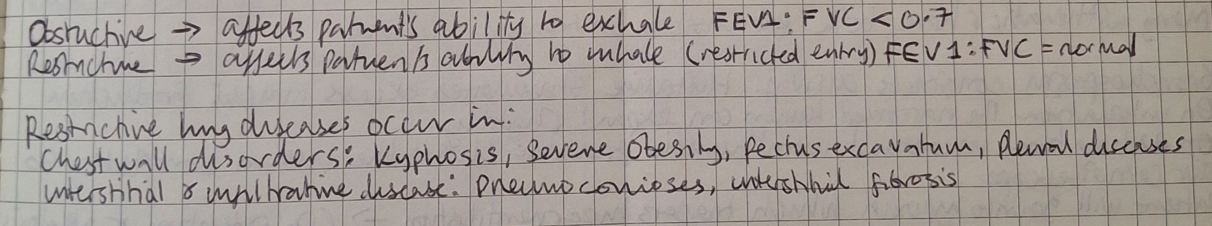 Obstructive → affects patient's ability to exhale FEV1:FVC <0.7
Restrictive → affects patient's ability to inhale (restricted entry) FEV1:FVC = normal
Restrictive lung diseases occur in:
Chest wall disorders: Kyphosis, Severe Obesity, pectus excavatum, Pleural diseases
interstitial & infiltrative disease: Pneumoconioses, interstitial fibrosis